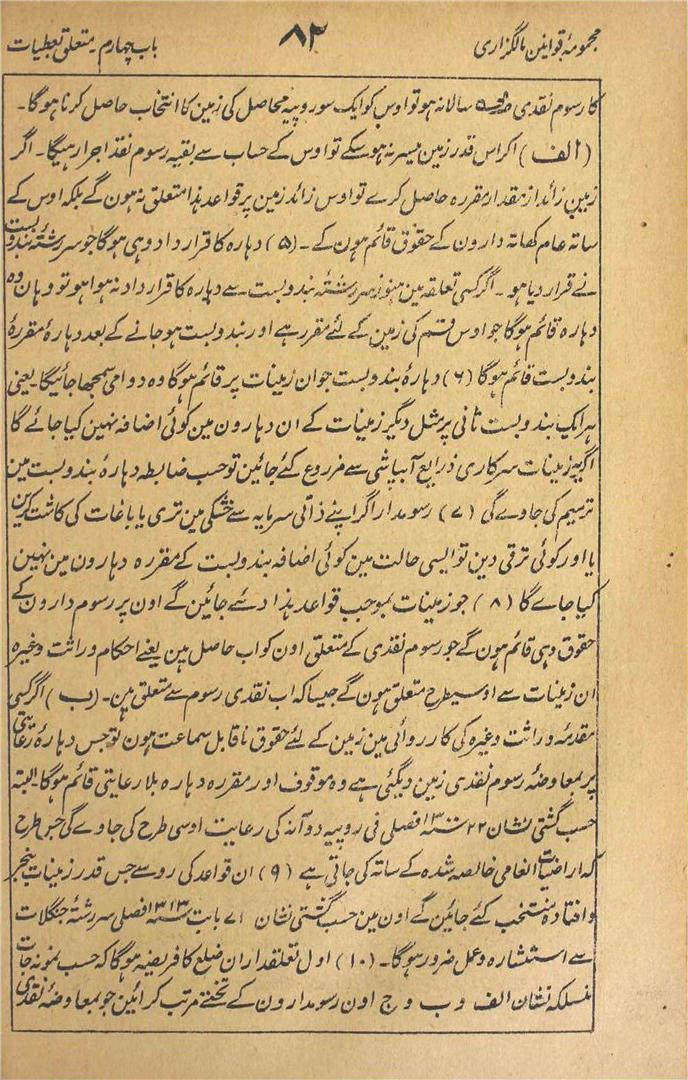 مجموعۂ قوانین مالگزاری
۸۲
باب چہارم۔ متعلق بعطیات
کا رسوم نقدی سالانہ ہو تو اوس کو ایک سو روپیہ محاصل کی زمین کا انتخاب حاصل کرنا ہوگا۔
(الف) اگر اس قدر زمین میسر نہ ہو سکے تو اوس کے حساب سے بقیہ رسوم نقد اجرا رہیگا۔ اگر
زمین زائد از مقدار مقررہ حاصل کرے تو اوس زائد زمین پر قواعد ہذا متعلق نہ ہون گے بلکہ اوس کے
ساتہ عام کھاتہ دارون کے حقوق قائم ہون گے۔ (۵) دہارہ کا قرار داد وہی ہوگا جو سررشتۂ بندوبست
نے قرار دیا ہو۔ اگر کسی تعلقہ مین ہنوز سررشتۂ بندوبست سے دہارہ کا قرار داد نہ ہوا ہو تو وہان وہ
دہارہ قائم ہوگا جو اوس قسم کی زمین کے لئے مقرر ہے اور بندوبست ہو جانے کے بعد دہارۂ مقررۂ
بندوبست قائم ہوگا (۶) دہارۂ بندوبست جو ان زمینات پر قائم ہوگا وہ دوامی سمجھا جائیگا۔ یعنی
ہر ایک بندوبست ثانی پر مثل دیگر زمینات کے ان دہارون مین کوئی اضافہ نہین کیا جائے گا
اگر یہ زمینات سرکاری ذرایع آبپاشی سے مزروع کئے جائین تو حسب ضابطہ دہارۂ بندوبست مین
ترمیم کی جاوے گی (۷) رسومدار اگر اپنے ذاتی سرمایہ سے خشکی مین تری یا باغات کی کاشت کرین
یا اور کوئی ترقی دین تو ایسی حالت مین کوئی اضافہ بندوبست کے مقررہ دہارون مین نہین
کیا جاے گا (۸) جو زمینات بموجب قواعد ہذا دئے جائین گے اون پر رسوم دارون کے
حقوق وہی قائم ہون گے جو رسوم نقدی کے متعلق اون کو اب حاصل ہین یعنے احکام وراثت وغیرہ
ان زمینات سے اوسیطرح متعلق ہون گے جیسا کہ اب نقدی رسوم سے متعلق ہین۔ (ب) اگر کسی
مقدمۂ وراثت وغیرہ کی کارروائی مین زمین کے لئے حقوق ناقابل سماعت ہون تو جس دہارۂ رعایتی
پر بمعاوضۂ رسوم نقدی زمین دیگئی ہے وہ موقوف اور مقررہ دہارہ بلا رعایتی قائم ہوگا۔ البتہ
حسب گشتی نشان ۲۲ فصلی فی روپیہ دو آنہ کی رعایت اوسی طرح کی جاوے گی جس طرح
کہ اراضیات انعامی خالصہ شدہ کے ساتہ کی جاتی ہے (۹) ان قواعد کی رو سے جس قدر زمینات بنجر
و افتادہ منتخب کئے جائین گے اون مین حسب گشتی نشان ۷۱ بابت ۱۳۱۳ فصلی سررشتۂ جنگلات
سے استشارہ و عمل ضرور ہوگا۔ (۱۰) اول تعلقداران ضلع کا فریضہ ہوگا کہ حسب نمونہ جات
منسلکہ نشان الف و ب و ج اون رسومدارون کے تختے مرتب کرائین جو بمعاوضۂ نقدی